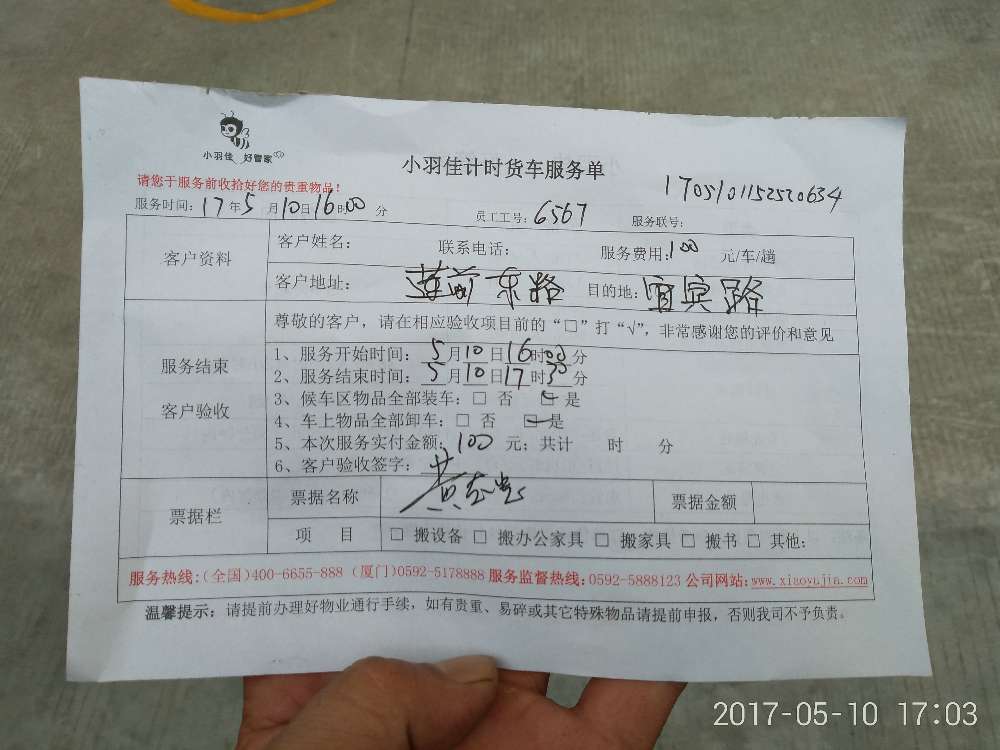 小羽佳 好管家
小羽佳计时货车服务单
请您于服务前收拾好您的贵重物品!
1705101152520634
服务时间: 17年5月10日16时00分 员工工号: 6567 服务联号:
客户资料
客户姓名: 联系电话: 服务费用: 100 元/车/趟
客户地址: 莲前东路 目的地: 宜宾路
尊敬的客户，请在相应验收项目前的“□”打“√”，非常感谢您的评价和意见
服务结束
客户验收
1、服务开始时间: 5月10日16时00分
2、服务结束时间: 5月10日17时30分
3、候车区物品全部装车: □ 否 ☑ 是
4、车上物品全部卸车: □ 否 ☑ 是
5、本次服务实付金额: 100 元; 共计 时 分
6、客户验收签字: 黄
票据栏
票据名称 票据金额
项 目 □ 搬设备 □ 搬办公家具 □ 搬家具 □ 搬书 □ 其他:
服务热线:(全国)400-6655-888 (厦门)0592-5178888 服务监督热线:0592-5888123 公司网站:www.xiaoyujia.com
温馨提示: 请提前办理好物业通行手续，如有贵重、易碎或其它特殊物品请提前申报，否则我司不予负责。
2017-05-10 17:03